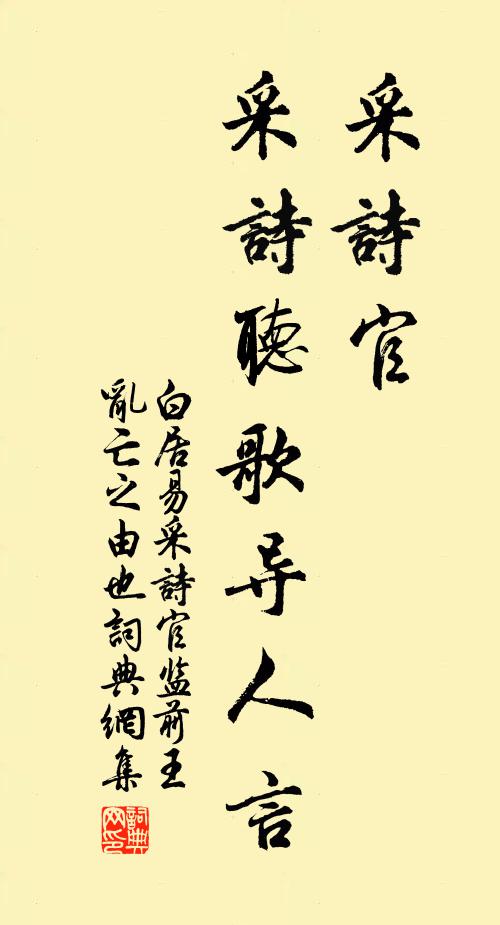 采詩官
采詩聽歌导人言
白居易采詩官监前王
亂亡之由也詞典網集
詞典网印